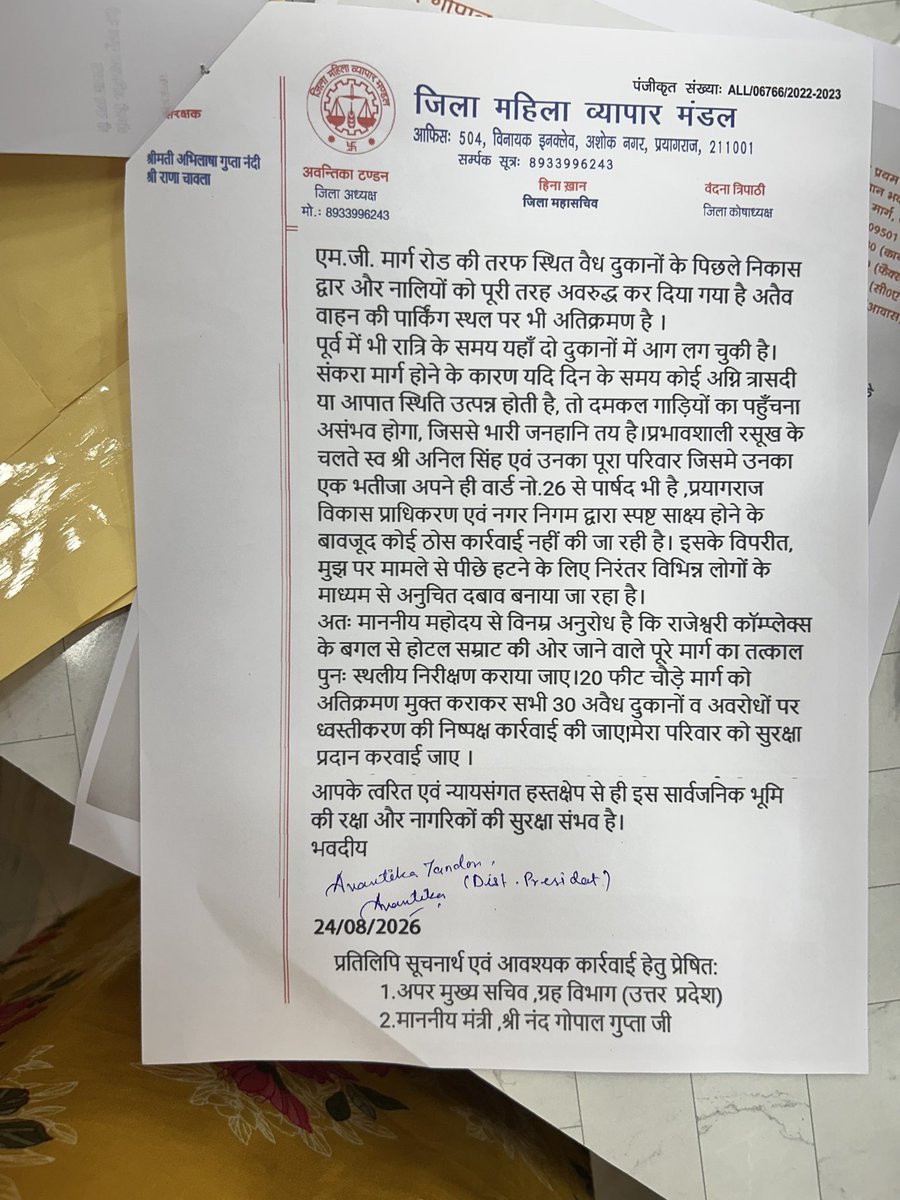 पंजीकृत संख्याः ALL/06766/2022-2023
जिला महिला व्यापार मण्डल
जिला महिला व्यापार मंडल
आफिसः 504, विनायक इनक्लेव, अशोक नगर, प्रयागराज, 211001
सम्पर्क सूत्रः 8933996243
संरक्षक
श्रीमती अभिलाषा गुप्ता नंदी
श्री राणा चावला
अवन्तिका टण्डन
जिला अध्यक्ष
मो.: 8933996243
हिना ख़ान
जिला महासचिव
वंदना त्रिपाठी
जिला कोषाध्यक्ष
एम.जी. मार्ग रोड की तरफ स्थित वैध दुकानों के पिछले निकास
द्वार और नालियों को पूरी तरह अवरुद्ध कर दिया गया है अतैव
वाहन की पार्किंग स्थल पर भी अतिक्रमण है ।
पूर्व में भी रात्रि के समय यहाँ दो दुकानों में आग लग चुकी है।
संकरा मार्ग होने के कारण यदि दिन के समय कोई अग्नि त्रासदी
या आपात स्थिति उत्पन्न होती है, तो दमकल गाड़ियों का पहुँचना
असंभव होगा, जिससे भारी जनहानि तय है।प्रभावशाली रसूख के
चलते स्व श्री अनिल सिंह एवं उनका पूरा परिवार जिसमे उनका
एक भतीजा अपने ही वार्ड नो.26 से पार्षद भी है ,प्रयागराज
विकास प्राधिकरण एवं नगर निगम द्वारा स्पष्ट साक्ष्य होने के
बावजूद कोई ठोस कार्रवाई नहीं की जा रही है। इसके विपरीत,
मुझ पर मामले से पीछे हटने के लिए निरंतर विभिन्न लोगों के
माध्यम से अनुचित दबाव बनाया जा रहा है।
अतः माननीय महोदय से विनम्र अनुरोध है कि राजेश्वरी कॉम्प्लेक्स
के बगल से होटल सम्राट की ओर जाने वाले पूरे मार्ग का तत्काल
पुनः स्थलीय निरीक्षण कराया जाए।20 फीट चौड़े मार्ग को
अतिक्रमण मुक्त कराकर सभी 30 अवैध दुकानों व अवरोधों पर
ध्वस्तीकरण की निष्पक्ष कार्रवाई की जाए|मेरा परिवार को सुरक्षा
प्रदान करवाई जाए ।
आपके त्वरित एवं न्यायसंगत हस्तक्षेप से ही इस सार्वजनिक भूमि
की रक्षा और नागरिकों की सुरक्षा संभव है।
भवदीय
Avantika Tandon.
(Dist. Presidat)
Avantika
24/08/2026
प्रतिलिपि सूचनार्थ एवं आवश्यक कार्रवाई हेतु प्रेषित:
1.अपर मुख्य सचिव ,ग्रह विभाग (उत्तर प्रदेश)
2.माननीय मंत्री ,श्री नंद गोपाल गुप्ता जी